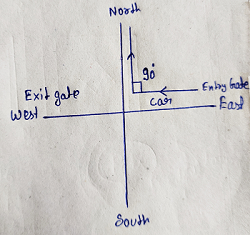 North
90°
Exit gate
Entry Gate
car
West
East
South